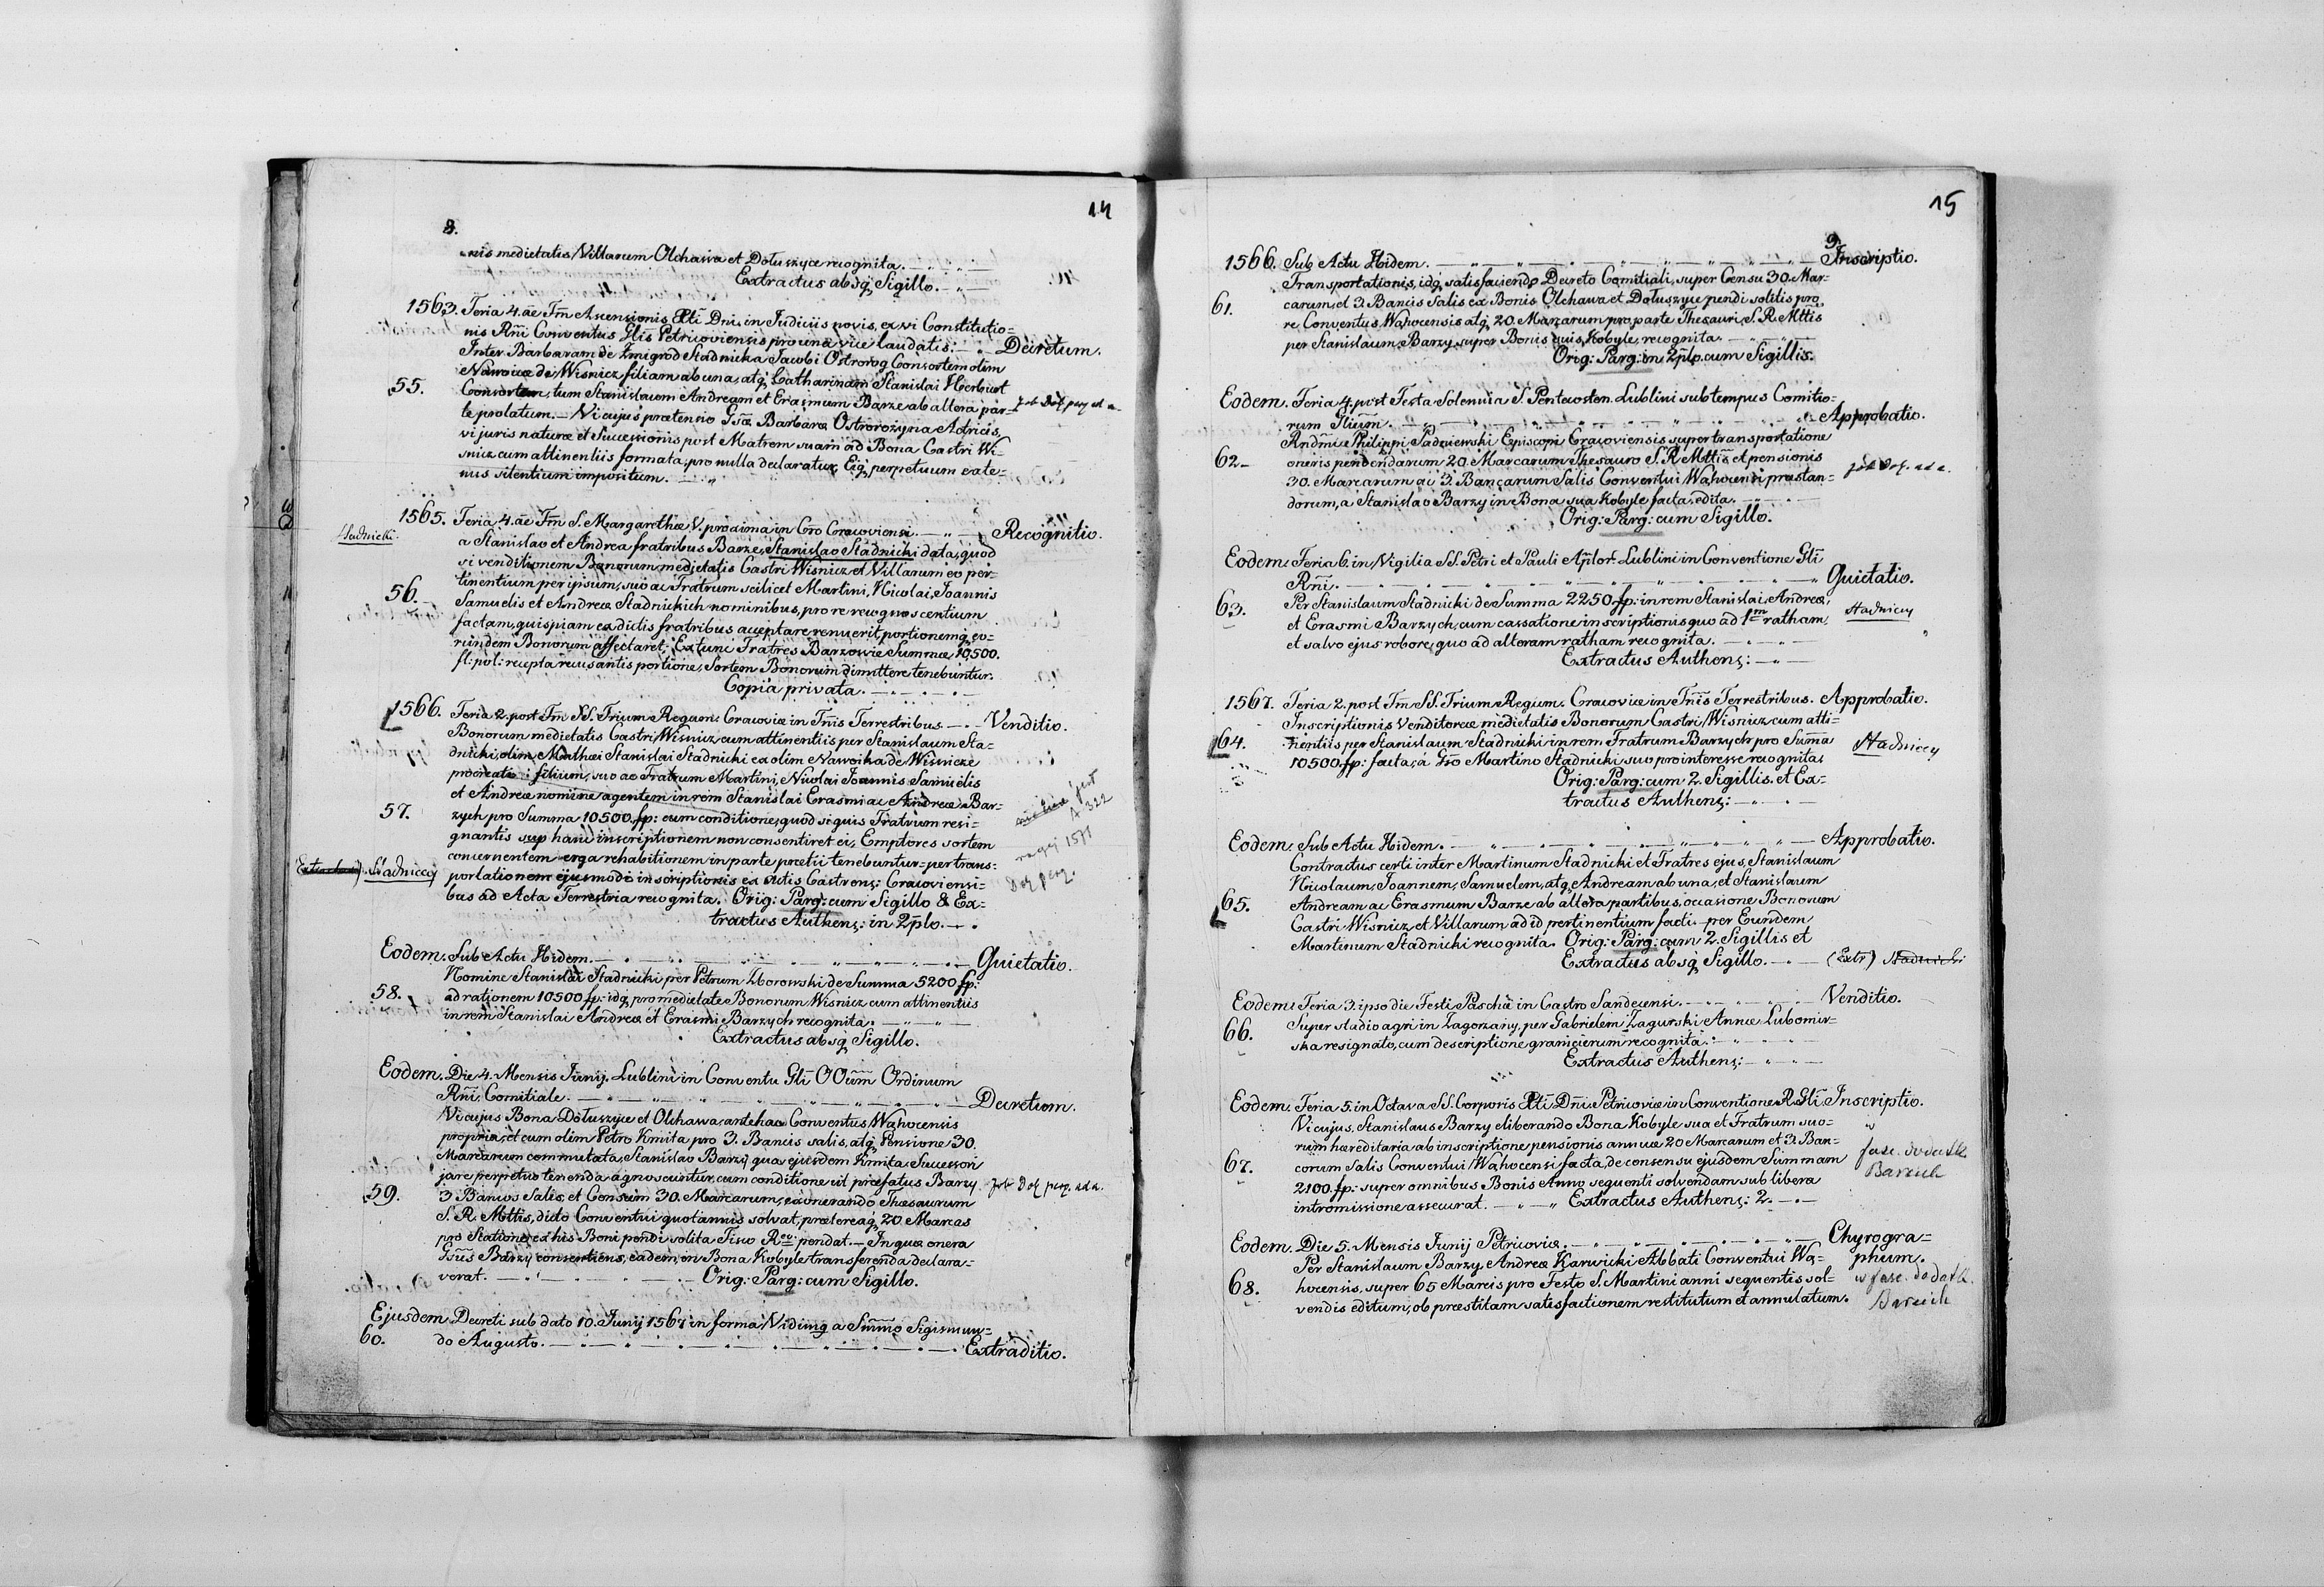 14
8.
nis medietatis Villarum Olchawa et Dołuszyce recognita.
Extractus absq Sigillo.
1563. Feria 4. ãe Fm Ascensionis Xti Dni, in Judiciis novis, ex vi Constitutio=
nis Rñi Conventus Glis Petricoviensis pro una vice laudatis. Decretum.
Inter Barbaram de Zmigrod Stadnicka Jacobi Ostrorog Consortem olim
Nawoice de Wisnicz filiam ab una, atq Catharinam Stanislai Herburt
55. Consortem, tum Stanislaum Andream et Erasmum Barze ab altera par=
te prolatum. Vi cujus prætensio Gsæ Barbaræ Ostrorożyna Actricis,
vi juris naturæ et Successionis post Matrem suam ad Bona Castri Wi=
snicz cum attinentiis formata, pro nulla declaratur, Eiq perpetuum exte=
nus silentium impositum.
1565. Feria 4. ãe Fm S. Margarethæ V. proxima in Cro Cracoviensi. Recognitio.
Stadnicki
a Stanislao et Andrea fratribus Barze, Stanislao Stadnicki data, quod
si venditionem Bonorum medietatis Castri Wisnicz et Villarum eo per=
tinentium per ipsum, suo ac Fratrum scilicet Martini, Nicolai, Joannis
56. Samuelis et Andreæ Stadnickich nominibus, pro re recognoscentium
factam, quispiam ex dictis fratribus acceptare renuerit, portionemq eo=
rundem Bonorum affectaret; Extunc Fratres Barzowie Summæ 10,500.
fl: pol: recepta recusantis portione, Sortem Bonorum dimittere tenebuntur.
Copia privata.
1566. Feria 2. post Fm SS. Trium Regum. Cracoviæ in Tnis Terrestribus. Venditio.
Bonorum medietatis Castri Wisnicz cum attinentiis per Stanislaum Sta=
dnicki, olim Mathæi Stanislai Stadnicki ex olim Nawoika de Wisnicze
procreati filium, suo ac Fratrum Martini, Nicolai Joannis Samuelis
et Andreæ nomine agentem in rem Stanislai Erasmi ac Andreæ Bar=
57. zych pro Summa 10500. fp: cum conditione, quod si quis Fratrum resi=
gnantis sup hanc inscriptionem non consentiret ei, Emptores sortem
concernentem erga rehabitionem in parte pretii tenebuntur=per trans=
Stadniccy
portationem ejusmodi inscriptionis ex Actis Castrens: Cracoviensi=
bus ad Acta Terrestria recognita. Orig: Parg: cum Sigillo & Ex=
tractus Authens: in 2plo.
Eodem. Sub Actu Hidem. Quietatio.
Nomine Stanislai Stadnicki per Petrum Zborowski de Summa 5200 fp:
58. ad rationem 10500 fp: idq pro medietate Bonorum Wisnicz cum attinentiis
in rem Stanislai Andreæ et Erasmi Barzych recognita.
Extractus absq Sigillo.
Eodem. Die 4. Mensis Junij. Lublini in Conventu Gli OOum Ordinum
Rñi. Comitiale. Decretum.
Vi cujus Bona Dołuszyce et Olchawa, antehac Conventus Wąhocensis
propria, et cum olim Petro Kmita pro 3. Bancis salis, atq Pensione 30.
Marcarum commutata, Stanislao Barzy, qua ejusdem Kmita Successori
jure perpetuo tenenda agnoscuntur, cum conditione ut præfatus Barzy
59. 3 Bancos Salis, et Censum 30. Marcarum, exonerando Thesaurum
S. R. Mttis, dicto Conventui quotannis solvat, prætereaq 20. Marcas
pro Statione ex his Boni pendi solita Fisco Reo. pendat. In quæ onera
Gsus Barzy consentiens, eadem in Bona Kobyle transferenda declara=
verat. Orig: Parg: cum Sigillo.
Ejusdem Decreti sub dato 10. Junij 1567 in forma Vidimq a Smmo Sigismun=
60. do Augusto. Extraditio.
15
9.
1566. Sub Actu Hidem. Inscriptio.
Transportationis, idq satisfaciendo Decreto Comitiali, super Censu 30. Mar=
61. carum, et 3. Bancis Salis ex Bonis Olchawa et Dołuszyce pendi solitis pro
re Conventus Wąhocensis atq 20. Marcarum pro parte Thesauri S. R. Mttis
per Stanislaum Barzy super Bonis suis Kobyle recognita.
Orig: Parg: in 2plo. cum Sigillis.
Eodem. Feria 4. post Festa Solennia S. Pentecosten. Lublini sub tempus Comitio=
rum Glium. Approbatio.
Rndmi Philippi Padniewski Episcopi Cracoviensis super transportatione
62. oneris pendendarum 20. Marcarum Thesauro S. R. Mttis et pensionis
30. Marcarum ac 3. Bancarum Salis Conventui Wąhocensi præstan=
dorum, a Stanislao Barzy in Bona sua Kobyle facta, edita.
Orig: Parg: cum Sigillo.
Eodem. Feria 6. in Vigilia SS. Petri et Pauli Aplor. Lublini in Conventione Gli
Rñi. Quietatio.
63. Per Stanislaum Stadnicki de Summa 2250. fp: in rem Stanislai, Andreæ,
et Erasmi Barzych, cum cassatione inscriptionis quo ad 1m ratham,
Stadniccy
et salvo ejus robore, quo ad alteram ratham recognita.
Extractus Authens:
1567. Feria 2. post Fm SS. Trium Regum. Cracoviæ in Tnis Terrestribus. Approbatio.
Inscriptionis Venditoreæ medietatis Bonorum Castri Wisnicz cum atti=
64. nentiis per Stanislaum Stadnicki in rem Fratrum Barzych pro Suma
Stadniccy
10500. fp: facta, a Gso Martino Stadnicki suo pro interesse recognita.
Orig: Parg: cum 2. Sigillis. et Ex=
tractus Authens:
Eodem. Sub Actu Hidem. Approbatio.
Contractus certi inter Martinum Stadnicki et Fratres ejus, Stanislaum
Nicolaum, Joannem, Samuelem, atq Andream ab una, et Stanislaum
65. Andream ac Erasmum Barze ab altera partibus, occasione Bonorum
Castri Wisnicz et Villarum ad id pertinentium facti per Eundem
Martinum Stadnicki recognita. Orig: Parg: cum 2. Sigillis et
Extractus absq Sigillo. (Extr) Stadnicki
Eodem. Feria 3. ipso die Festi Pascha in Castro Sandecensi. Venditio.
66. Super stadio agri in Zagorzany, per Gabrielem Zagurski Annæ Lubomir=
ska resignato, cum descriptione granicierum recognita.
Extractus Authens:
Eodem. Feria 5. in Octava SS. Corporis Xti Dni. Petricoviæ in Conventione R. Gli. Inscriptio.
Vi cujus, Stanislaus Barzy eliberando Bona Kobyle sua et Fratrum suo=
rum hæreditaria ab inscriptione pensionis annuæ 20 Marcarum et 3. Ban=
67. corum Salis Conventui Wąhocensi facta, de consensu ejusdem Summam
fasc. dodatk.
Barzich
2100. fp: super omnibus Bonis Anno sequenti solvendam sub libera
intromissione assecurat. Extractus Authens: 2.
Eodem. Die 5. Mensis Junij Petricoviæ. Chyrogra=
phum.
Per Stanislaum Barzy, Andreæ Karwicki Abbati Conventui Wą=
68. hocensis, super 65 Marcis pro Festo S. Martini anni sequentis sol=
w fasc. dodatk.
vendis editum, ob præstitam satisfactionem restitutum et annulatum.
Barzich